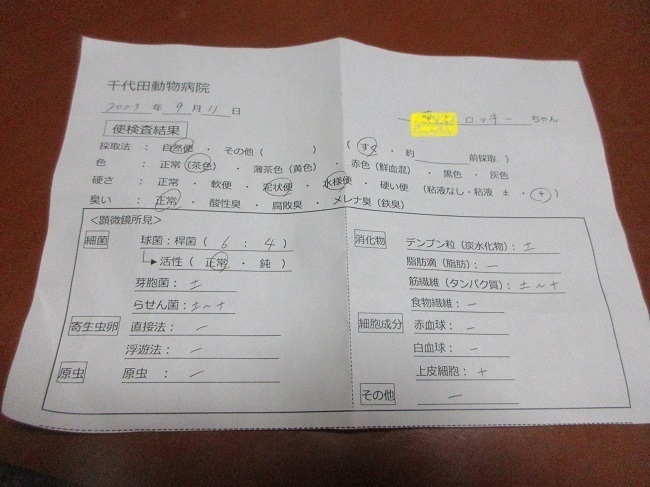 千代田動物病院
2023 年 9 月 11 日
ロッキー ちゃん
便検査結果
採取法 : 自然便 ・ その他 ( ) ( すぐ ・ 約 前採取 )
色 : 正常 (茶色) ・ 薄茶色 (黄色) ・ 赤色 (鮮血混) ・ 黒色 ・ 灰色
硬さ : 正常 ・ 軟便 ・ 泥状便 ・ 水様便 ・ 硬い便 (粘液なし・粘液 ± ・ +)
臭い : 正常 ・ 酸性臭 ・ 腐敗臭 ・ メレナ臭 (鉄臭)
<顕微鏡所見>
細菌 球菌 : 桿菌 ( 6 : 4 )
活性 ( 正常 ・ 鈍 )
芽胞菌 : ±
らせん菌 : ±~+
寄生虫卵 直接法 : −
浮遊法 : −
原虫 原虫 : −
消化物 デンプン粒 (炭水化物) : ±
脂肪滴 (脂肪) : −
筋繊維 (タンパク質) : ±~+
食物繊維 : −
細胞成分 赤血球 : −
白血球 : −
上皮細胞 : +
その他 −